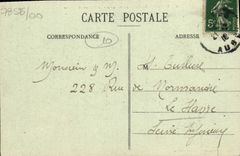 7856/00
CARTE POSTALE
CORRESPONDANCE
ADRESSE
10
5
AUB
Monsieur & M.
228 Rue de Normandie
Le Havre
Seine Inférieure